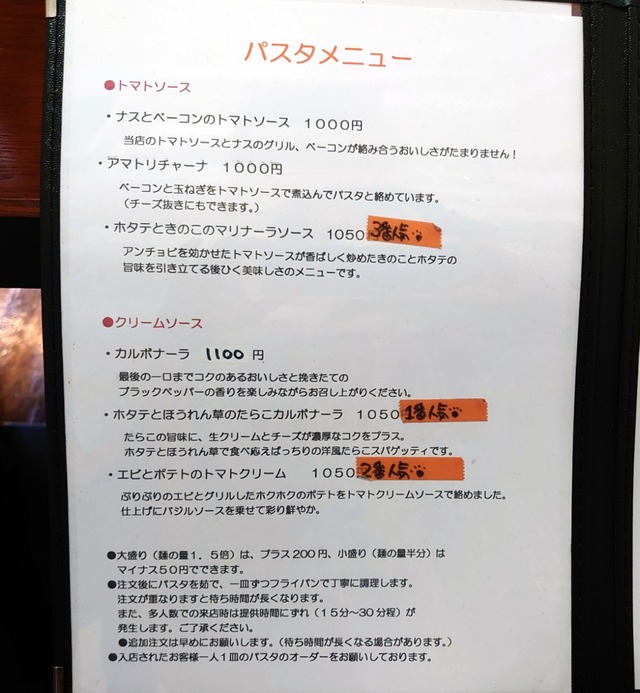 パスタメニュー
●トマトソース
・ナスとベーコンのトマトソース 1000円
当店のトマトソースとナスのグリル、ベーコンが絡み合うおいしさがたまりません!
・アマトリチャーナ 1000円
ベーコンと玉ねぎをトマトソースで煮込んでパスタと絡めています。
(チーズ抜きにもできます。)
・ホタテときのこのマリナーラソース 1050 3番人気
アンチョビを効かせたトマトソースが香ばしく炒めたきのことホタテの
旨味を引き立てる後ひく美味しさのメニューです。
●クリームソース
・カルボナーラ 1100 円
最後の一口までコクのあるおいしさと挽きたての
ブラックペッパーの香りを楽しみながらお召し上がりください。
・ホタテとほうれん草のたらこカルボナーラ 1050 1番人気
たらこの旨味に、生クリームとチーズが濃厚なコクをプラス。
ホタテとほうれん草で食べ応えばっちりの洋風たらこスパゲッティです。
・エビとポテトのトマトクリーム 1050 2番人気
ぷりぷりのエビとグリルしたホクホクのポテトをトマトクリームソースで絡めました。
仕上げにバジルソースを乗せて彩り鮮やか。
●大盛り(麺の量1.5倍)は、プラス200円、小盛り(麺の量半分)は
マイナス50円でできます。
●注文後にパスタを茹で、一皿ずつフライパンで丁寧に調理します。
注文が重なりますと待ち時間が長くなります。
また、多人数での来店時は提供時間にずれ(15分～30分程)が
発生します。ご了承ください。
●追加注文は早めにお願いします。(待ち時間が長くなる場合があります。)
●入店されたお客様一人1皿のパスタのオーダーをお願いしております。